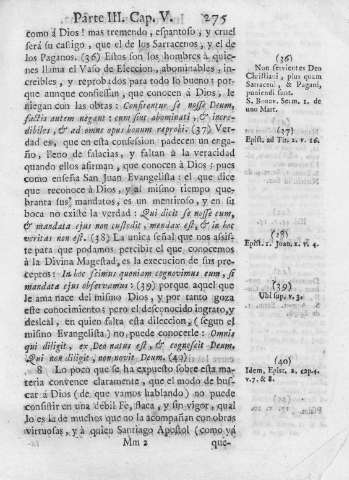 Parte III. Cap. V. 275
como á Dios! mas tremendo, espantoso, y cruel
será su castigo, que el de los Sarracenos, y el de
los Paganos. (36) Estos son los hombres à quie-
nes llama el Vaso de Eleccion, abominables, in-
creibles, y reprobados para todo lo bueno; por
que aunque confiessan, que conocen à Dios, le
niegan con las obras: Confitentur se nosse Deum,
factis autem negant: cum sint abominati, & incre-
dibiles, & ad omne opus bonum reprobi. (37) Ver-
dad es, que en esta confession padecen un enga-
ño, lleno de falacias, y faltan à la veracidad
quando ellos afirman, que conocen à Dios: pues
como enseña San Juan Evangelista: el que dice
que reconoce à Dios, y al mismo tiempo que-
branta sus mandatos, es un mentiroso, y en su
boca no existe la verdad: Qui dicit se nosse eum,
& mandata ejus non custodit, mendax est, & in hoc
veritas non est. (38) La unica señal que nos assis-
te para que podamos percibir el que conocemos
à la Divina Magestad, es la execucion de sus pre-
ceptos: In hoc scimus quoniam cognovimus eum, si
mandata ejus observamus: (39) porque aquel que
le ama nace del mismo Dios, y por tanto goza
este conocimiento; pero el desconocido ingrato, y
desleal, en quien falta esta dileccion, (segun el
mismo Evangelista) no puede conocerle: Omnis
qui diligit, ex Deo natus est, & cognoscit Deum.
Qui non diligit, non novit Deum. (40)
8 Lo poco que se ha expuesto sobre esta ma-
teria convence claramente, que el modo de bus-
car á Dios (de que vamos hablando) no puede
consistir en una débil Fé, flaca, y sin vigor, qual
lo es la de muchos que no la acompañan con obras
virtuosas, y à quien Santiago Apostol (como yá
Mm 2 que-
(36)
Non servientes Deo
Christiani, plus quam
Sarraceni, & Pagani,
puniendi sunt.
S. Bonav. Serm. 1. de
uno Mart.
(37)
Epist. ad Tit. 1. v. 16.
(38)
Epist. 1. Joan. 2. v. 4.
(39)
Ubi sup. v. 3.
(40)
Idem, Epist. 1. cap. 4.
v. 7. & 8.